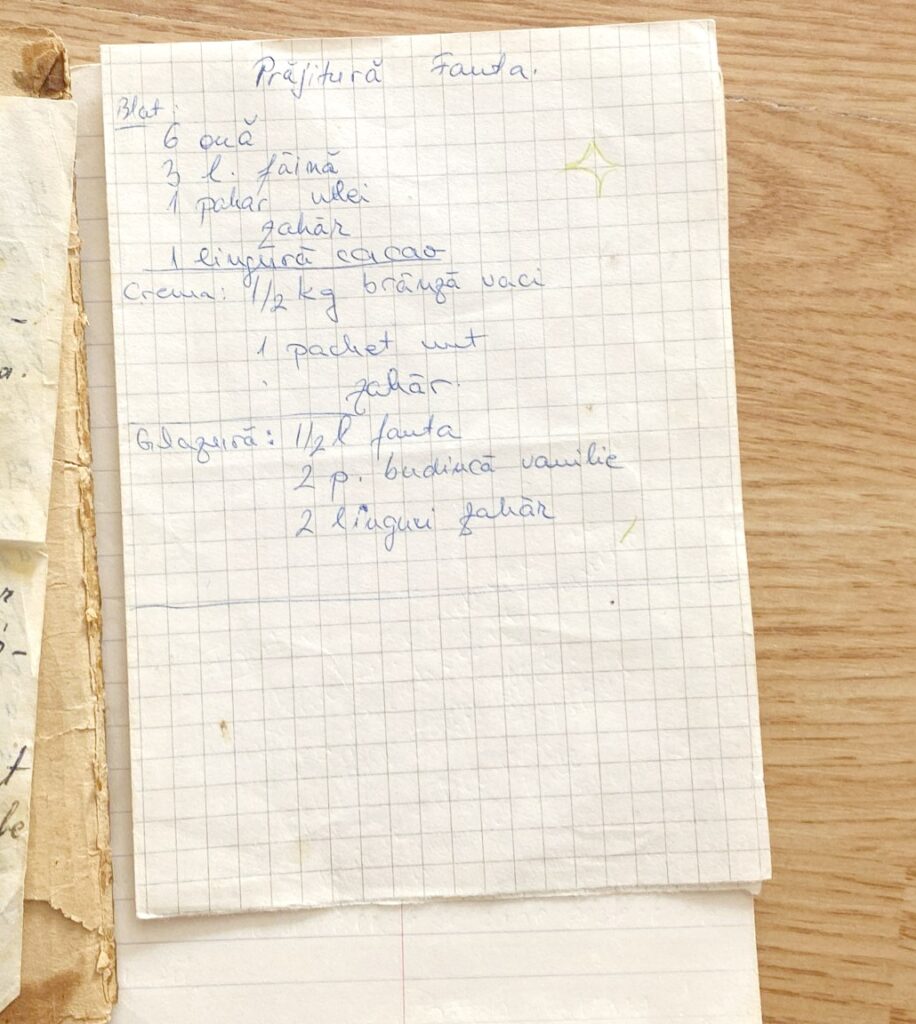 Prăjitură Fanta.
Blat:
6 ouă
3 l. făină
1 pahar ulei
zahăr
1 lingură cacao
Crema: 1/2 kg brânză vaci
1 pachet unt
zahăr.
Glazură: 1/2 l fanta
2 p. budincă vanilie
2 linguri zahăr